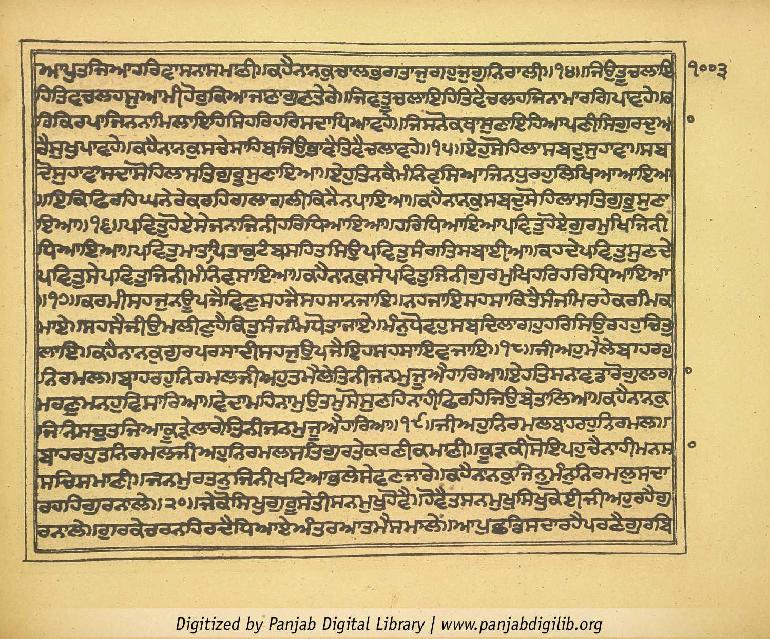 ਆਪੁਤਜਿਆਹਰਿਵਾਸਨਾਸਮਾਣੀ॥ਕਹੈਨਾਨਕੁਚਾਲਭਗਤਾਜੁਗਹੁਜੁਗੁਨਿਰਾਲੀ॥੧੪॥ਜਿਉਤੂਚਲਾਇ
੧੦੦੩
ਹਿਤਿਵਚਲਹਸੁਆਮੀਹੋਰੁਕਿਆਜਾਣਾਗੁਣਤੇਰੇ॥ਜਿਵਤੂਚਲਾਇਹਿਤਿਵੈਚਲਹਜਿਨਾਮਾਰਗਿਪਾਵਹੇ॥ਕ
ਰਿਕਿਰਪਾਜਿਨਨਾਮਿਲਾਇਹਿਸਿਹਰਿਹਰਿਸਦਾਧਿਆਵਹੇ॥ਜਿਸਨੋਕਥਾਸੁਣਾਇਹਿਆਪਣੀਸਿਗੁਰਦੁਆ
ਰੈਸੁਖੁਪਾਵਹੇ॥ਕਹੈਨਾਨਕੁਸਚੇਸਾਹਿਬਜਿਉਭਾਵੈਤਿਵੈਚਲਾਵਹੇ॥੧੫॥ਏਹੁਸੋਹਿਲਾਸਬਦੁਸੁਹਾਵਾ॥ਸਬ
ਦੋਸੁਹਾਵਾਸਦਾਸੋਹਿਲਾਸਤਿਗੁਰੂਸੁਣਾਇਆ॥ਏਹੁਤਿਨਕੈਮੰਨਿਵਸਿਆਜਿਨਧੁਰਹੁਲਿਖਿਆਆਇਆ
॥ਇਕਿਫਿਰਹਿਘਨੇਰੇਕਰਹਿਗਲਾਗਲੀਕਿਨੈਨਪਾਇਆ॥ਕਹੈਨਾਨਕੁਸਬਦੁਸੋਹਿਲਾਸਤਿਗੁਰੂਸੁਣਾ
ਇਆ॥੧੬॥ਪਵਿਤੁਹੋਏਸੇਜਨਾਜਿਨੀਹਰਿਧਿਆਇਆ॥ਹਰਿਧਿਆਇਆਪਵਿਤੁਹੋਏਗੁਰਮੁਖਿਜਿਨੀ
ਧਿਆਇਆ॥ਪਵਿਤੁਮਾਤਾਪਿਤਾਕੁਟੰਬਸਹਿਤਸਿਉਪਵਿਤੁਸੰਗਤਿਸਬਾਈਆ॥ਕਹਦੇਪਵਿਤੁਸੁਣਦੇ
ਪਵਿਤੁਸੇਪਵਿਤੁਜਿਨੀਮੰਨਿਵਸਾਇਆ॥ਕਹੈਨਾਨਕੁਸੇਪਵਿਤੁਜਿਨੀਗੁਰਮੁਖਿਹਰਿਹਰਿਧਿਆਇਆ
॥੧੭॥ਕਰਮੀਸਹਜੁਨਊਪਜੈਵਿਣੁਸਹਜੈਸਹਸਾਨਜਾਇ॥ਨਹਜਾਇਸਹਸਾਕਿਤੈਸੰਜਮਿਰਹੇਕਰਮਕ
ਮਾਏ॥ਸਹਸੈਜੀਉਮਲੀਣੁਹੈਕਿਤੁਸੰਜਮਿਧੋਤਾਜਾਏ॥ਮੰਨੁਧੋਵਹੁਸਬਦਿਲਾਗਹੁਹਰਿਸਿਉਰਹਹੁਚਿਤੁ
ਲਾਇ॥ਕਹੈਨਾਨਕੁਗੁਰਪਰਸਾਦੀਸਹਜੁਉਪਜੈਇਹੁਸਹਸਾਇਵਜਾਇ॥੧੮॥ਜੀਅਹੁਮੈਲੇਬਾਹਰਹੁ
ਨਿਰਮਲ॥ਬਾਹਰਹੁਨਿਰਮਲਜੀਅਹੁਤਮੈਲੇਤਿਨੀਜਨਮੁਜੂਐਹਾਰਿਆ॥ਏਹਤਿਸਨਾਵਡਾਰੋਗੁਲਗਾ
ਮਰਣੁਮਨਹੁਵਿਸਾਰਿਆ॥ਵੇਦਾਮਹਿਨਾਮੁਉਤਮੁਸੋਸੁਣਹਿਨਾਹੀਫਿਰਹਿਜਿਉਬੇਤਾਲਿਆ॥ਕਹੈਨਾਨਕੁ
ਜਿਨਸਚੁਤਜਿਆਕੂੜੇਲਾਗੇਤਿਨੀਜਨਮੁਜੂਐਹਾਰਿਆ॥੧੯॥ਜੀਅਹੁਨਿਰਮਲਬਾਹਰਹੁਨਿਰਮਲ॥
ਬਾਹਰਹੁਤਨਿਰਮਲਜੀਅਹੁਨਿਰਮਲਸਤਿਗੁਰਤੇਕਰਣੀਕਮਾਣੀ॥ਕੂੜਕੀਸੋਇਪਹੁਚੈਨਾਹੀਮਨਸਾ
ਸਚਿਸਮਾਣੀ॥ਜਨਮੁਰਤਨੁਜਿਨੀਖਟਿਆਭਲੇਸੇਵਣਜਾਰੇ॥ਕਹੈਨਾਨਕੁਜਿਨਮੰਨੁਨਿਰਮਲੁਸਦਾ
ਰਹਹਿਗੁਰਨਾਲੇ॥੨੦॥ਜੇਕੋਸਿਖੁਗੁਰੂਸੇਤੀਸਨਮੁਖੁਹੋਵੈ॥ਹੋਵੈਤਸਨਮੁਖੁਸਿਖੁਕੋਈਜੀਅਹੁਰਹੈਗੁ
ਰਨਾਲੇ॥ਗੁਰਕੇਚਰਨਹਿਰਦੈਧਿਆਏਅੰਤਰਆਤਮੈਸਮਾਲੇ॥ਆਪੁਛਡਿਸਦਾਰਹੈਪਰਣੈਗੁਰਬਿ
Digitized by Panjab Digital Library | www.panjabdigilib.org